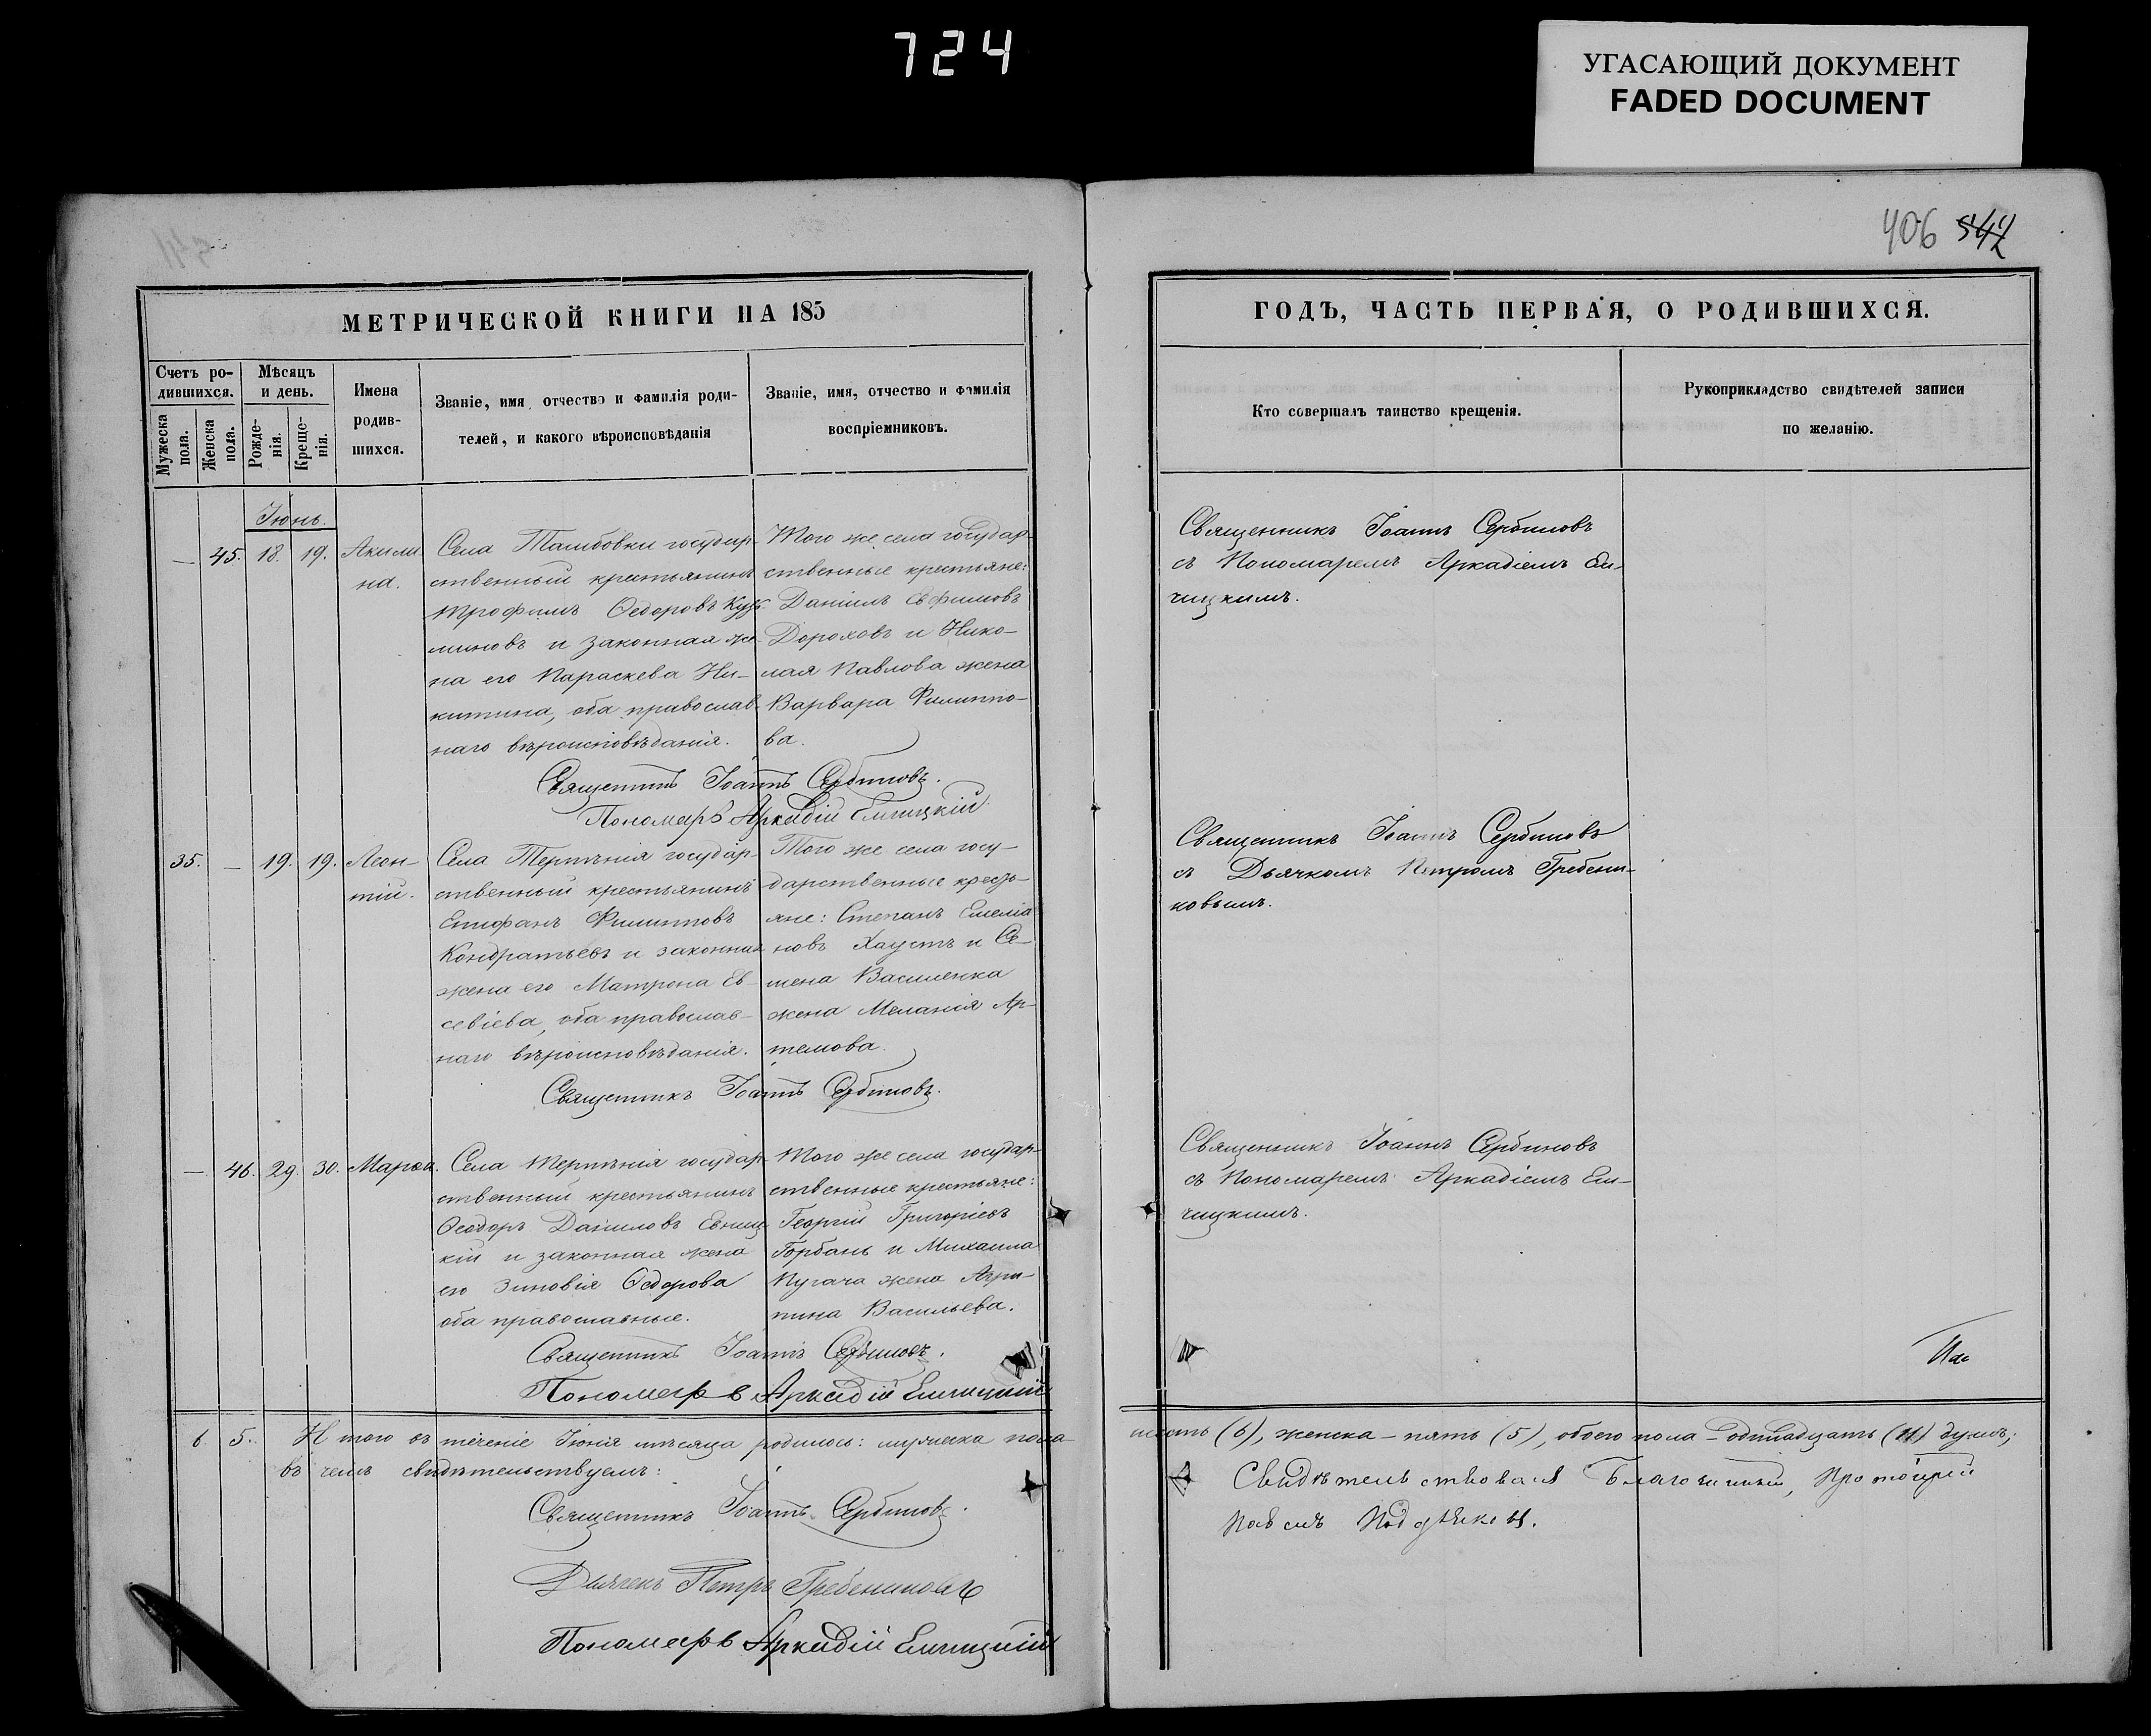 724
УГАСАЮЩИЙ ДОКУМЕНТ
FADED DOCUMENT
406 544
МЕТРИЧЕСКОЙ КНИГИ НА 185
Счетъ ро-
дившихся.
Мужеска
пола.
Женска
пола.
Мѣсяцъ
и день.
Рожде-
нія.
Креще-
нія.
Имена
родив-
шихся.
Званіе, имя, отчество и фамилія роди-
телей, и какого вѣроисповѣданія
Званіе, имя, отчество и фамилія
воспріемниковъ.
Іюнь.
— 45. 18. 19. Акили
на.
Села Тамбовки государ-
ственный крестьянинъ
Трофимъ Ѳедоровъ Кузь-
миновъ и законная же-
на его Параскева Ни-
китина, оба православ-
наго вѣроисповѣданія.
Того же села государ-
ственные крестьяне:
Даніилъ Евфимовъ
Дороховъ и Нико-
лая Павлова жена
Варвара Филиппо-
ва.
Священникъ Іоаннъ Сербиновъ.
Пономарь Аркадій Емчицкій
35. — 19. 19. Леон-
тій.
Села Терпѣнія государ-
ственный крестьянинъ
Епифанъ Филипповъ
Кондратьевъ и законная
жена его Матрона Ев-
севіева, оба православ-
наго вѣроисповѣданія.
Того же села госу-
дарственные кресть-
яне: Степанъ Емеліа
новъ Хаустъ и Се-
мена Василенка
жена Меланія Ар-
темова.
Священникъ Іоаннъ Сербиновъ.
— 46. 29. 30. Марѳа.
Села Терпѣнія государ-
ственный крестьянинъ
Ѳеодоръ Даниловъ
кій и законная жена
его Зиновія Ѳедорова
оба православные.
Того же села государ-
ственные крестьяне:
Георгій Григоріевъ
Горбань и Михаила
Пугача жена Агри-
пина Васильева.
Священникъ Іоаннъ Сербиновъ.
Пономарь Аркадій Емчицкій
6. 5. Итого въ теченіе Іюнія мѣсяца родилось: мужеска пола
въ чемъ свидѣтельствуемъ:
Священникъ Іоаннъ Сербиновъ.
Дьячекъ Петръ Гребениковъ
Пономарь Аркадій Емчицкій
ГОДЪ, ЧАСТЬ ПЕРВАЯ, О РОДИВШИХСЯ.
Кто совершалъ таинство крещенія.
Рукоприкладство свидѣтелей записи
по желанію.
Священникъ Іоаннъ Сербиновъ
съ Пономаремъ Аркадіемъ Ем-
чицкимъ.
Священникъ Іоаннъ Сербиновъ
съ Дьячкомъ Петромъ Гребени-
ковымъ.
Священникъ Іоаннъ Сербиновъ
съ Пономаремъ Аркадіемъ Ем-
чицкимъ.
Пав
шесть (6), женска - пять (5), обоего пола - одинадцать (11) душъ;
Свидѣтельствовалъ Благочинный, Протоіерей
Павелъ